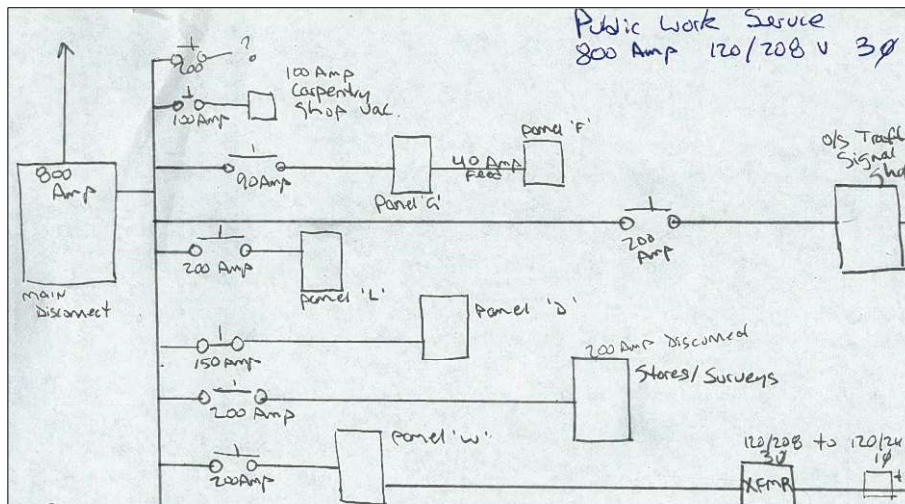 Public Work Service
800 Amp 120/208 v 3ø
200 ?
100 Amp
Carpentry
Shop Vac.
100 Amp
800
Amp
90 Amp
Panel 'G'
40 Amp
Feed
Panel 'F'
O/S Traff
Signal
Sho
200
Amp
200 Amp
Panel 'L'
Main
Disconnect
Panel 'D'
150 Amp
200 Amp Disconnect
Stores/Surveys
200 Amp
Panel 'W'
200 Amp
120/208 to 120/24
3ø 1ø
XFMR